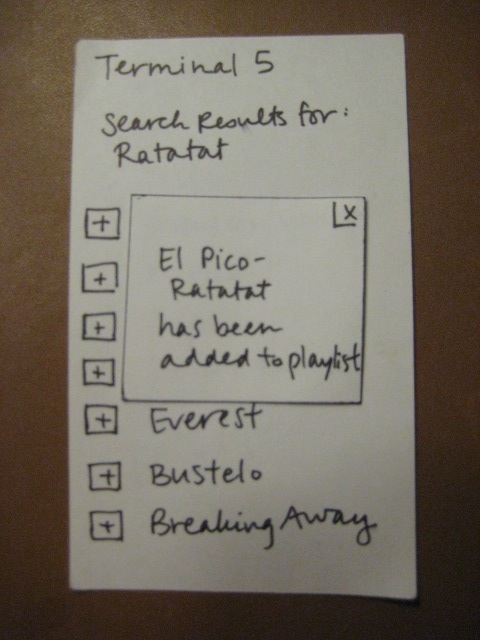 Terminal 5
Search Results for:
Ratatat
+
x
+
El Pico-
Ratatat
+
has been
+
added to playlist
+ Everest
+ Bustelo
+ Breaking Away